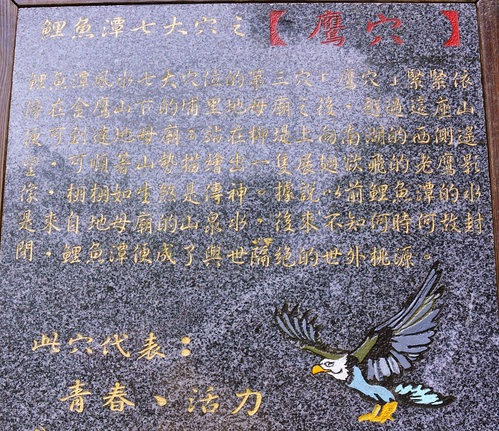 鯉魚潭七大穴之【鷹穴】
鯉魚潭風水七大穴位的第三穴「鷹穴」緊緊依
落在金鷹山下的埔里地母廟之後，越過這座山
及可到達地母廟。站在柳堤上向南湖的西側邊
望，可順著山勢描繪出一隻展翅欲飛的老鷹影
像，栩栩如生煞是傳神。據說以前鯉魚潭的水
是來自地母廟的山泉水，後來不知何時何故封
閉，鯉魚潭便成了與世隔絕的世外桃源。
此穴代表：
青春、活力